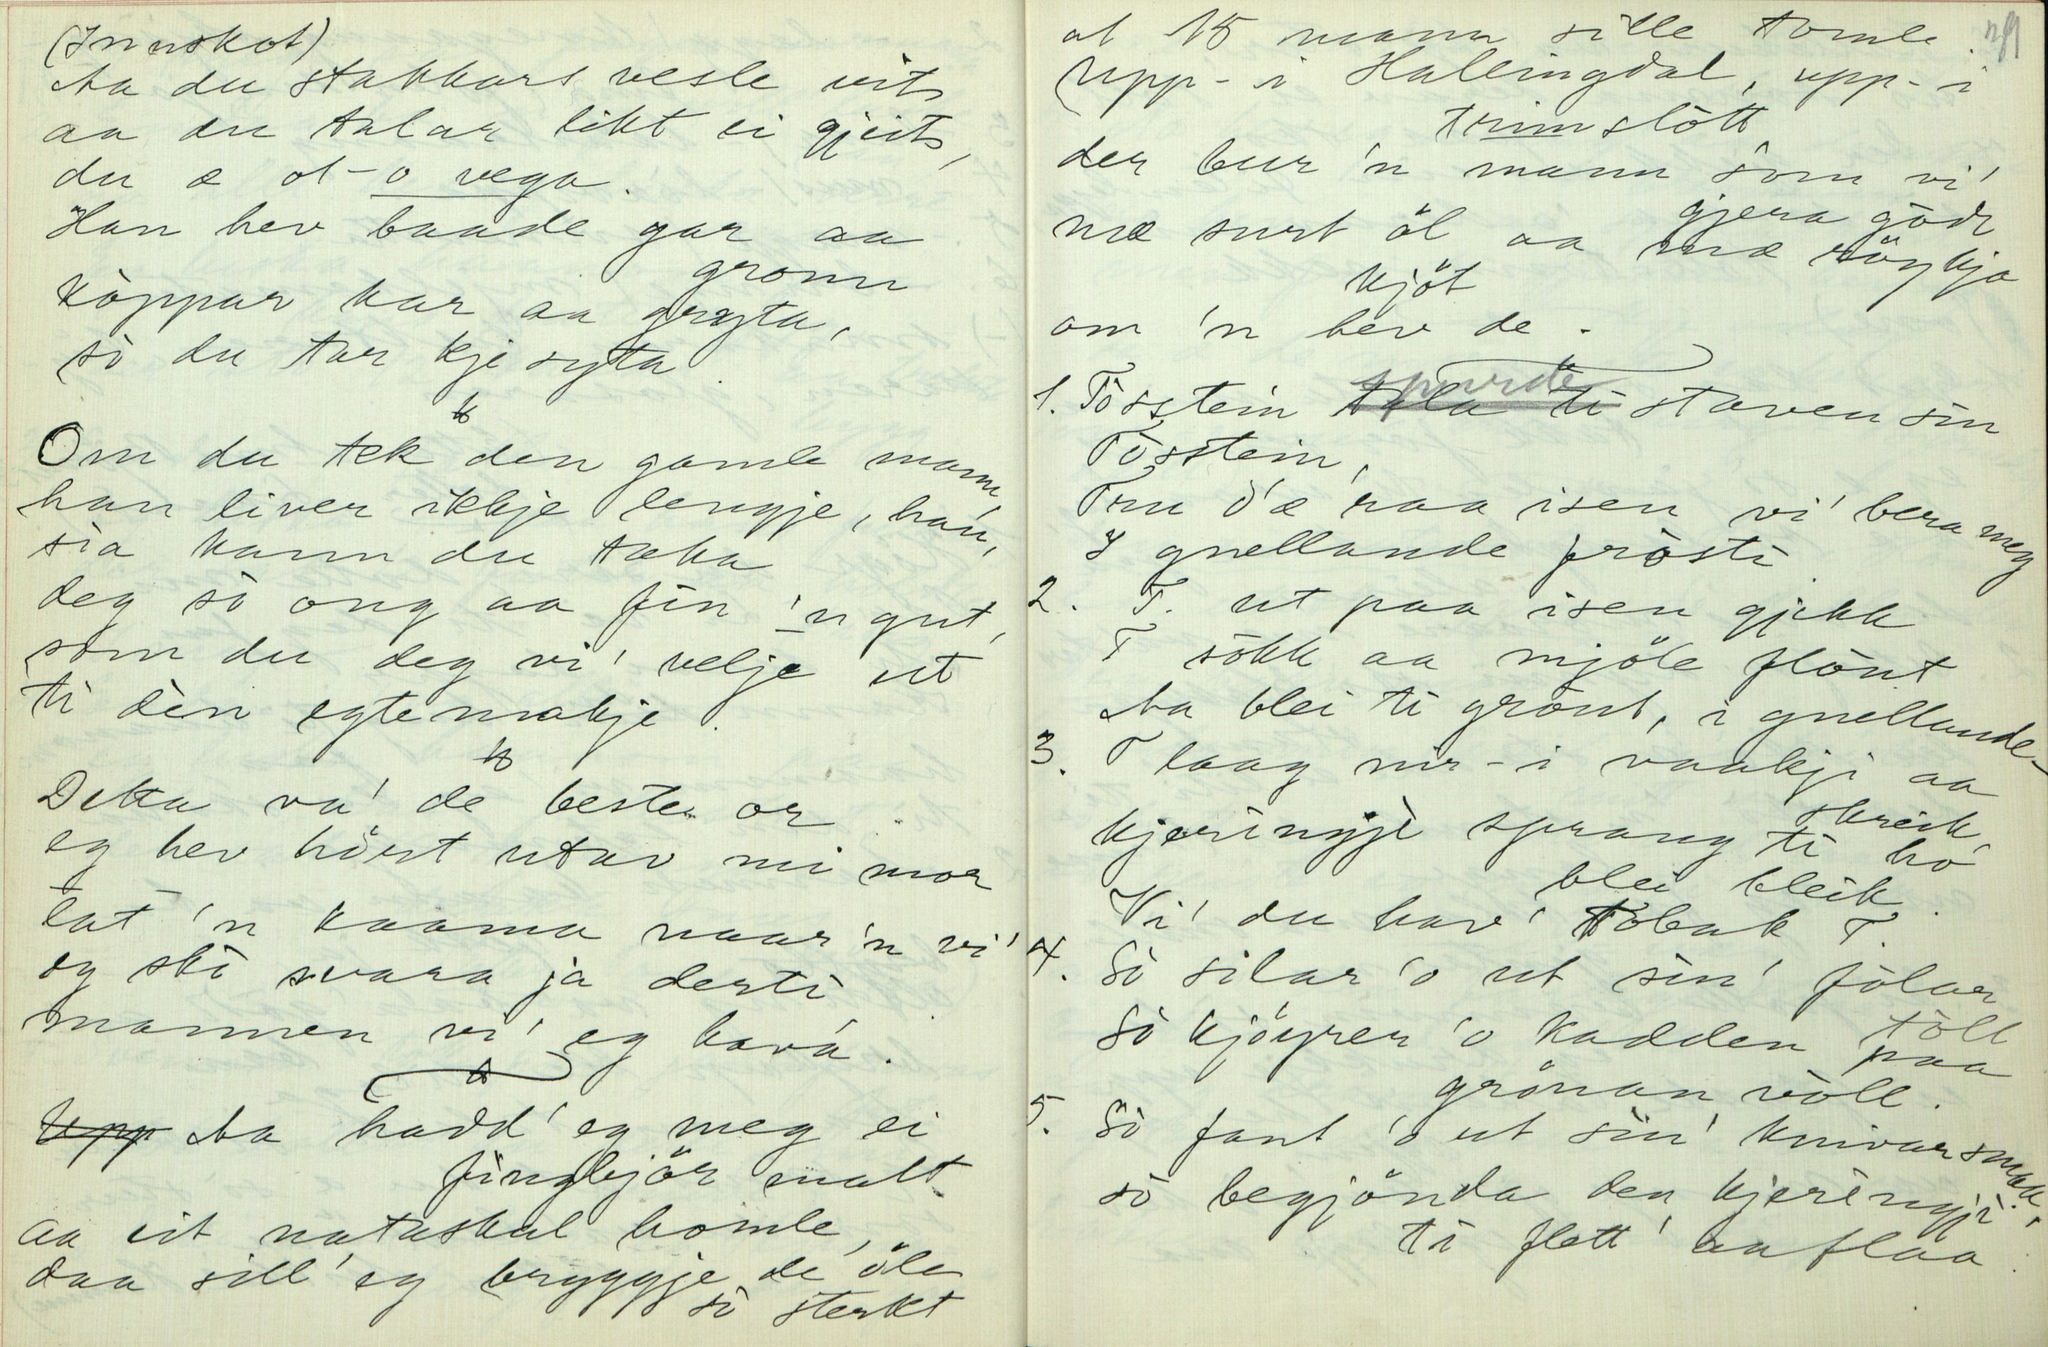 (Innskot)
Aa du stakkars vesle vits
aa du talar likt ei gjeits,
du æ ot-o vega.
Han hev baade gar aa
gronn
köppar kar aa gryta,
so du tar kje syta.
Om du tek den gamle mann
han liver ikkje lengje, han,
sia kann du taka
deg so ong aa fin 'n gut,
som du deg vi' velje ut
ti din egtemakje.
Detta va' de beste or
eg hev hört utav mi mor
lat 'n kaama naar 'n vi'
eg ska svara ja derti
mannen vi' eg hava.
Upp Aa hadd' eg meg ei
fingbjör malt
aa eit notaskal homle,
daa sill' eg bryggje de öle
so sterkt
at 15 mann sille tomle.
Upp-i Hallingdal, upp-i
trimslött
der bur 'n mann som vi'
gjera gödt
mæ surt öl aa mæ röykja
kjöt
om 'n hev de.
1. Tosstein tala ti staven sin
spurde
Tosstein,
Tru d'æ raa isen vi' bera meg
I gnellande frosti
2. T. ut paa isen gjekk
T sokk aa mjöle flöut
Aa blei ti gröut, i gnellande-
3. T laag nir-i vaakji aa
skreik,
kjeringji sprang ti ho
blei bleik.
Vi' du hav' tobak T.
4. So silar 'o ut sin' folar
toll
So kjöyrer 'o kadden paa
grönan voll.
5. So fant 'o ut sin' knivar smaa,
so begjönda den kjeringji
ti flett' aa flaa.